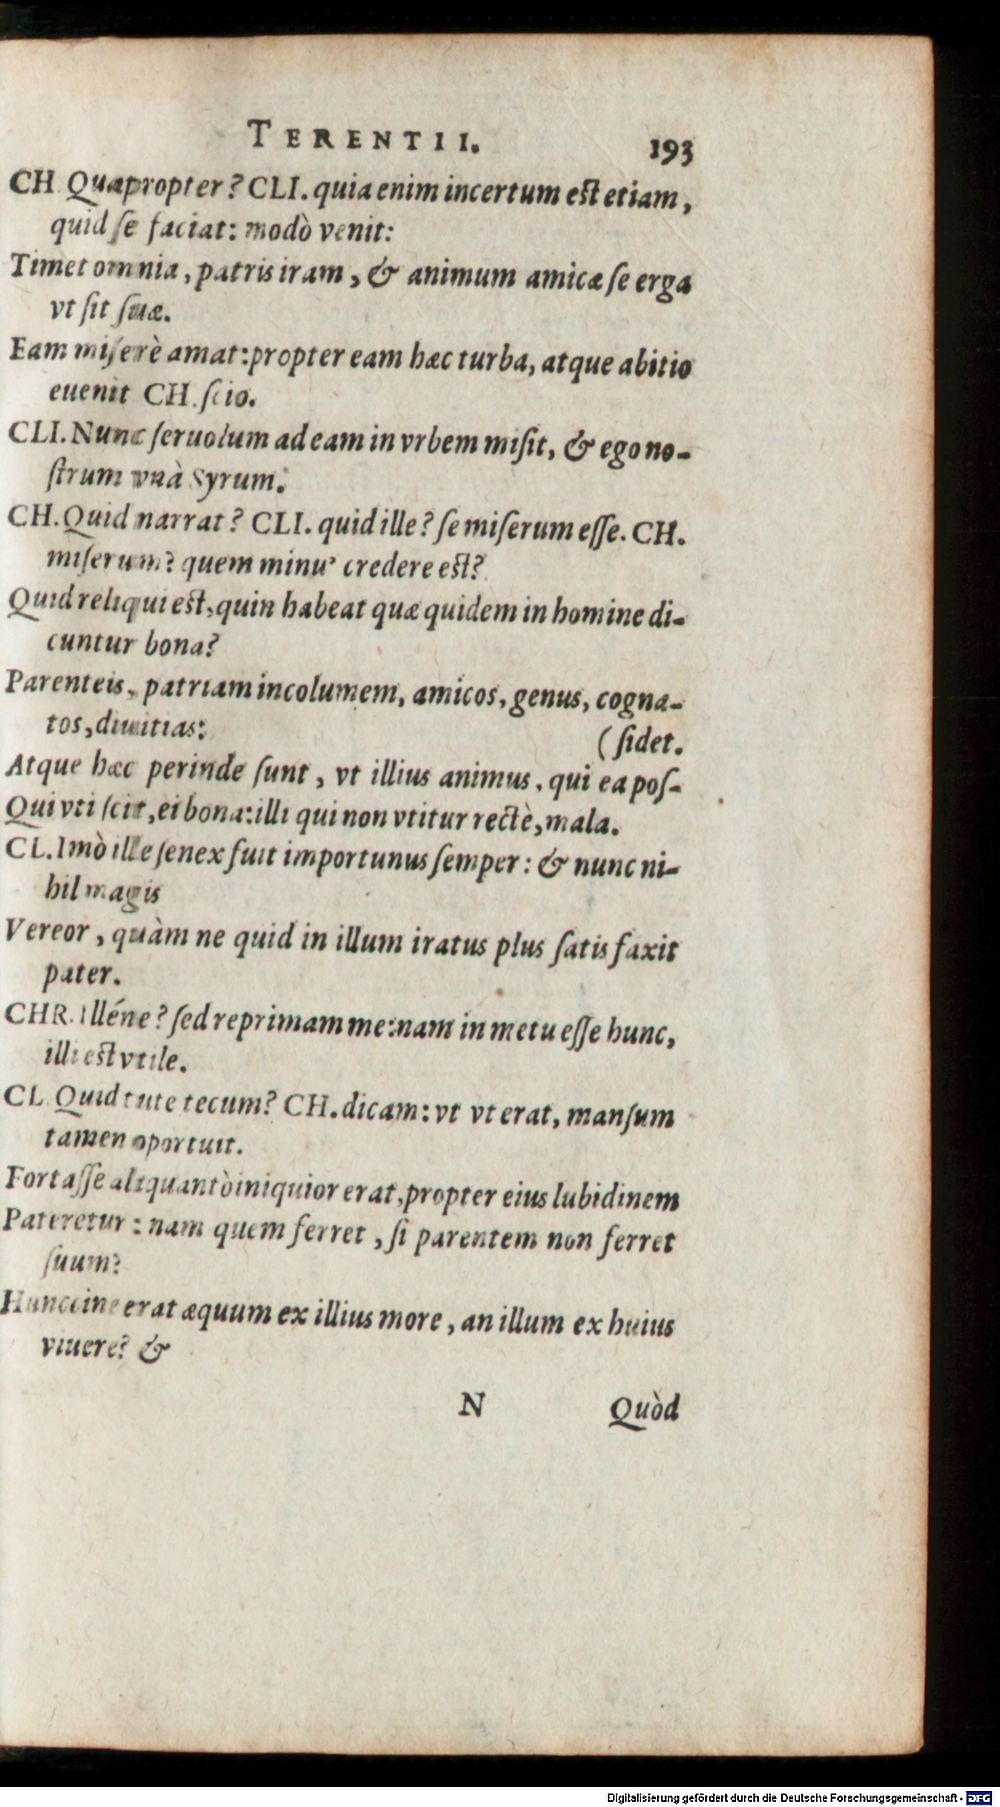 TERENTII. 193
CH Quapropter? CLI. quia enim incertum est etiam,
quid se faciat: modò venit:
Timet omnia, patris iram, & animum amicæ se erga
vt sit suæ.
Eam miserè amat: propter eam hæc turba, atque abitio
euenit CH. scio.
CLI. Nunc seruolum ad eam in vrbem misit, & ego no-
strum vnà Syrum.
CH. Quid narrat? CLI. quid ille? se miserum esse. CH.
miserum? quem minu' credere est?
Quid reliqui est, quin habeat quæ quidem in homine di-
cuntur bona?
Parenteis, patriam incolumem, amicos, genus, cogna-
tos, diuitias: (sidet.
Atque hæc perinde sunt, vt illius animus, qui ea pos-
Qui vti scit, ei bona: illi qui non vtitur rectè, mala.
CL. Imò ille senex fuit importunus semper: & nunc ni-
hil magis
Vereor, quàm ne quid in illum iratus plus satis faxit
pater.
CHR. Illéne? sed reprimam me: nam in metu esse hunc,
illi est vtile.
CL Quid tute tecum? CH. dicam: vt vt erat, mansum
tamen oportuit.
Fortasse aliquantò iniquior erat, propter eius lubidinem
Pateretur: nam quem ferret, si parentem non ferret
suum?
Hunccine erat æquum ex illius more, an illum ex huius
viuere? &
N Quòd
Digitalisierung gefördert durch die Deutsche Forschungsgemeinschaft - DFG